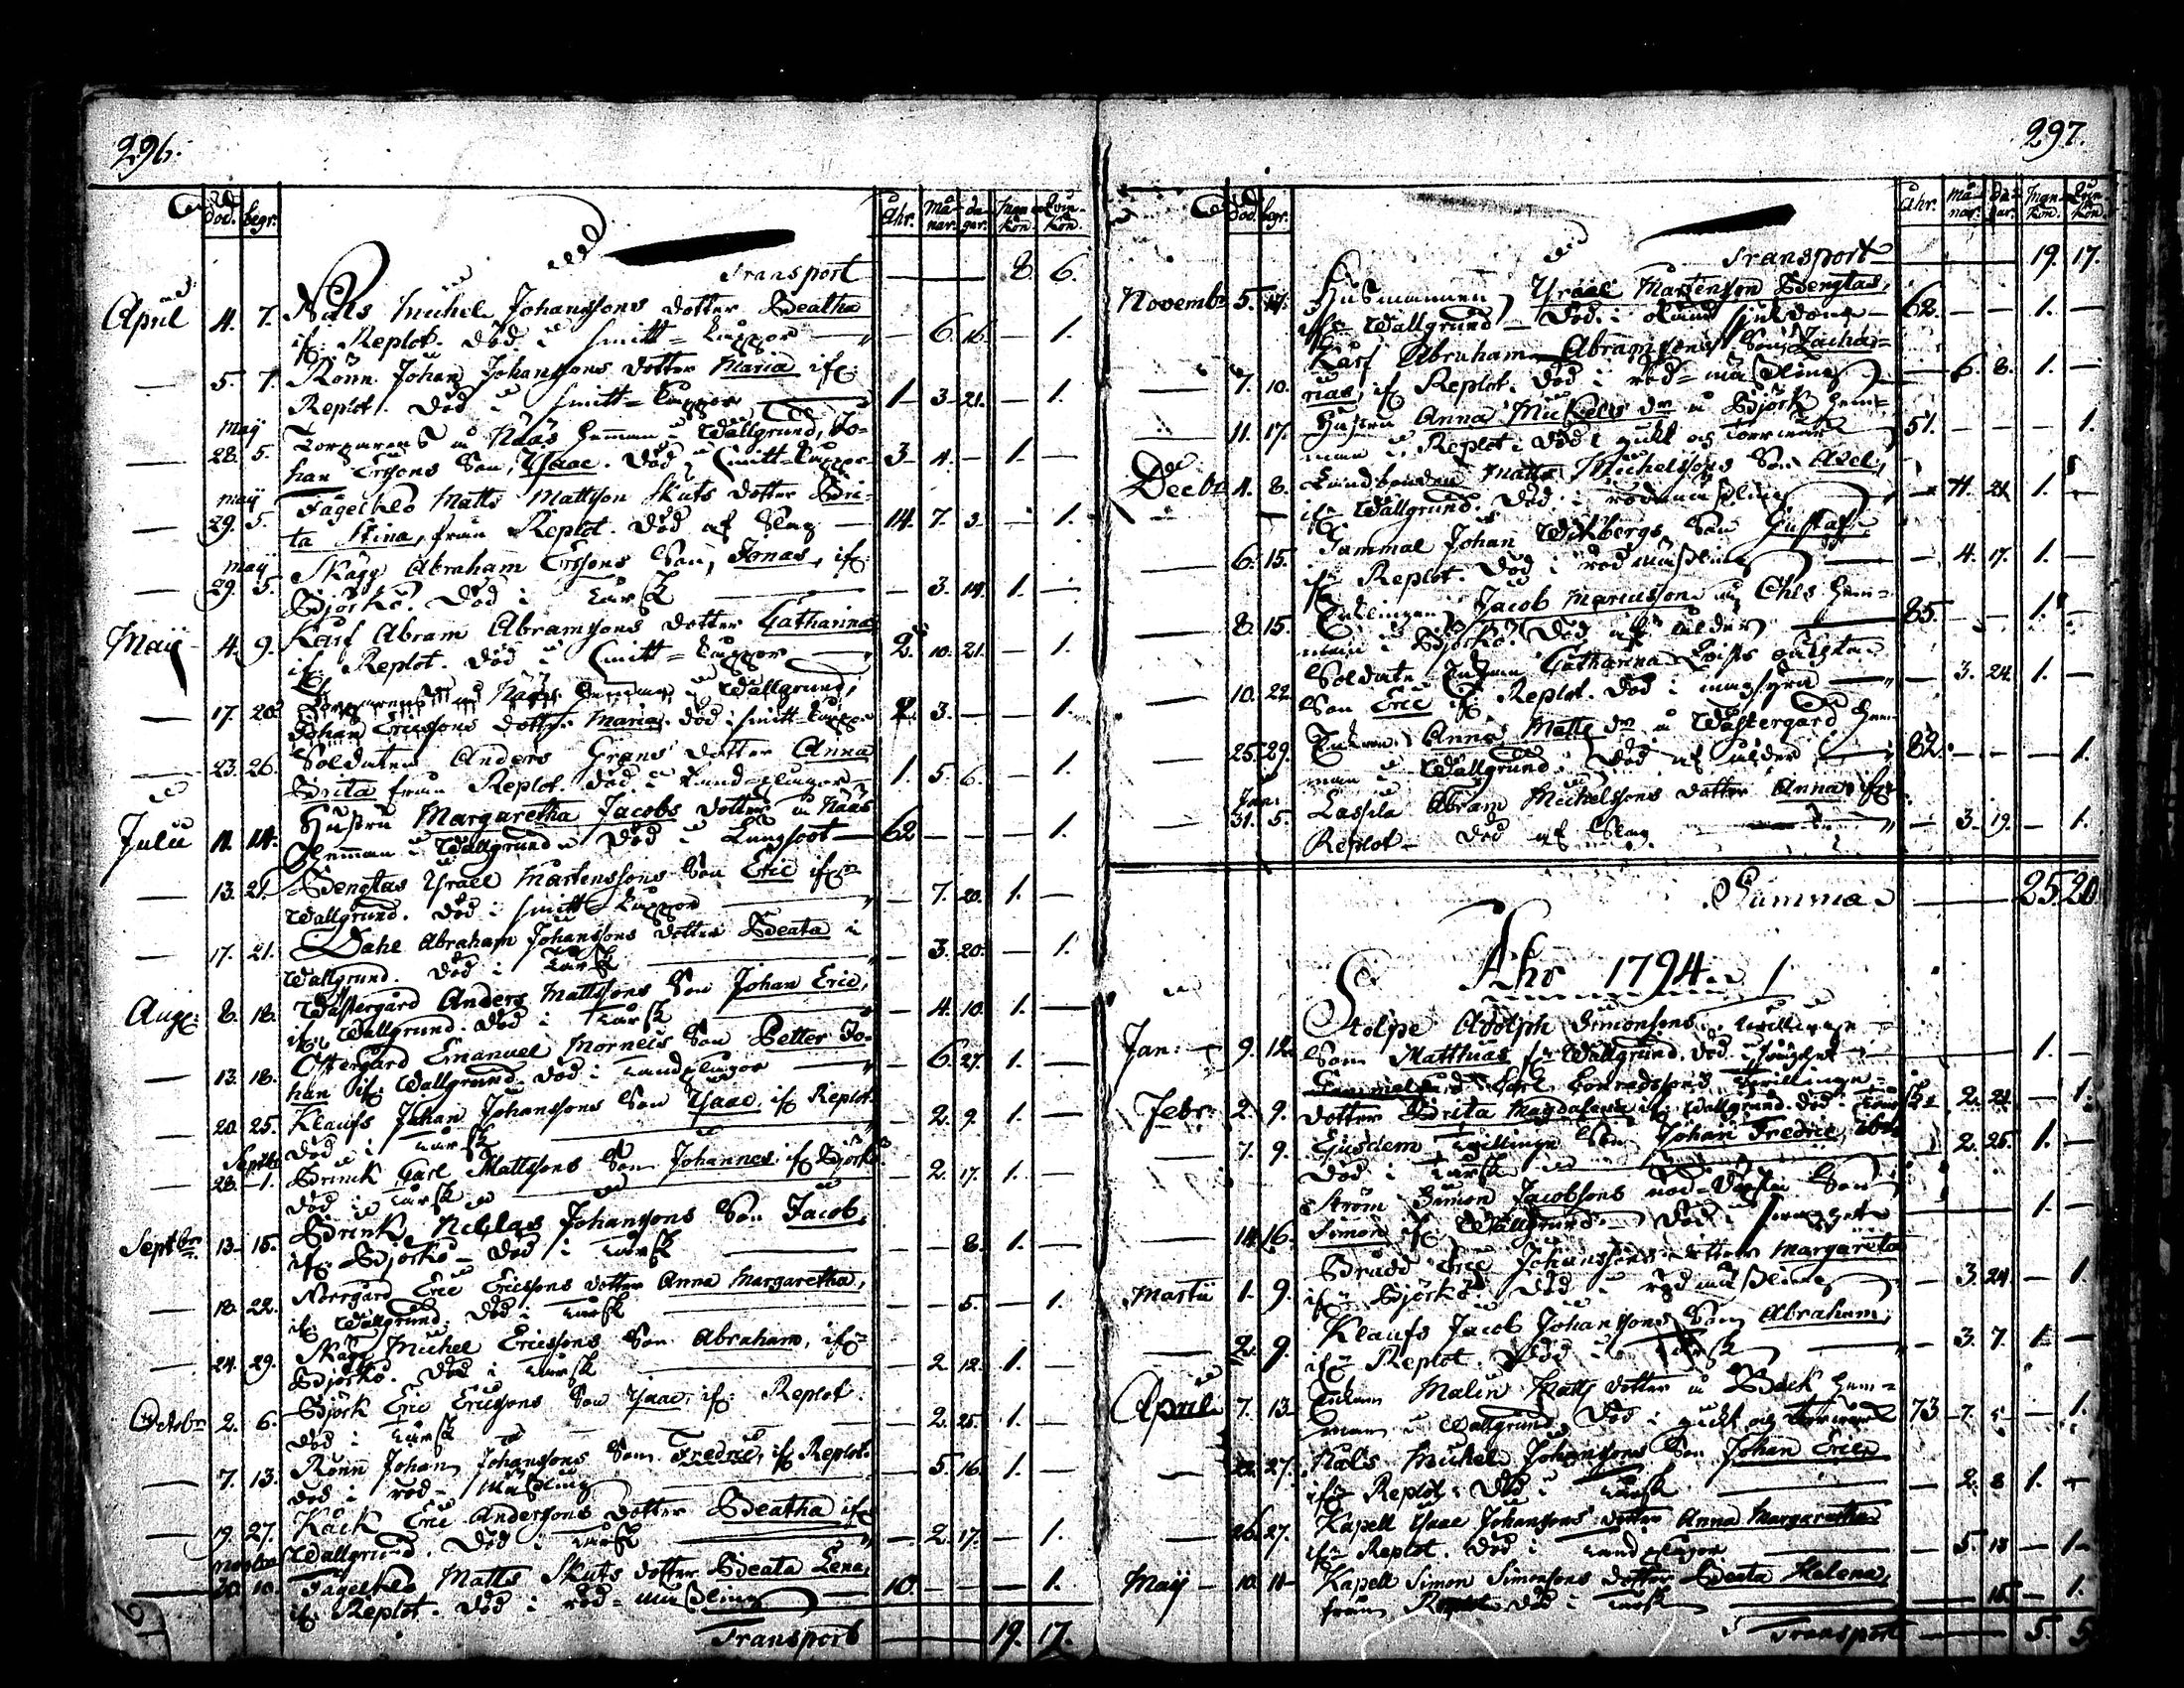 296.
död. begr. Åhr. Må-nar. da-gar. Man-kön. Qvin-kön.
Transport — 8. 6.
April 4. 7. Nåls Michel Johanssons dotter Beatha
if. Replot. död i hitt-kuppor — 6. 16. — 1.
— 5. 7. Rönn Johan Johanssons dotter Maria if.
Replot. död i hitt-kuppor 1 — 3 — 21. — 1.
maij
— 28. 5. Torparens å Nääs hemman i Wallgrund, Jo-
han Erssons Son, Isaac. död i hitt-kuppor 3 — 4. — 1. —
maij
— 29. 5. Fagerholm Matts Mattsson Skuts dotter Bri-
ta Stina, från Replot. död af Slag — 14. 7. 3. — 1.
maij
— 29. 5. Skägg Abraham Erssons Son, Jonas, if.
Björkö. död i Torsk — 3. 14. 1. —
Maij 4. 9. Karf Abram Abramssons dotter Catharina
if. Replot. död i hitt-kuppor — 2. 10. 21. — 1.
— 17. 20. Torparens å Nääs hemman i Wallgrund,
Johan Ericssons dotter Maria. död i hitt-kuppor 2. 3. — — 1.
— 23. 26. Soldaten Anders Grans dotter Anna
Brita från Replot. död i Landplågor 1. 5. 6. — 1.
Julii 11. 14. Hustru Margaretha Jacobs dotter å Nääs
Hemman i Wallgrund. död i Lungsoot — 62 — — — 1.
— 13. 21. Bengtas Israel Mårtenssons Son Eric if.
Wallgrund. död i hitt-kuppor — 7. 20. 1. —
— 17. 21. Dahl Abraham Johanssons dotter Beata i
Wallgrund. död i Torsk — 3. 20. — 1.
Aug: 8. 18. Wästergård Anders Mattssons Son Johan Eric,
if. Wallgrund. död i Torsk — 4. 10. 1. —
— 13. 18. Östergård Emanuel Mörneis Son Petter Jo-
han if. Wallgrund. död i Landplågor — 6. 27. 1. —
— 20. 25. Klaufs Johan Johanssons Son Isaac, if. Replot
död i Torsk — 2. 9. 1. —
Septbr
— 28. 1. Brinck Carl Mattssons Son Johannes if. Björkö
död i Torsk — 2. 17. 1. —
Septbr 13. 15. Brink Nicklas Johanssons Son Jacob,
if. Björkö — död i Torsk — — 8. 1. —
— 18. 22. Norrgård Eric Ericssons dotter Anna Margaretha,
if. Wallgrund. död i Torsk — — 5. — 1.
— 24. 29. Skägg Michel Ericssons Son Abraham, if.
Björkö. död i Torsk — 2. 12. 1. —
Octobr 2. 6. Björk Eric Ericssons Son Isaac, if. Replot.
död i Torsk — 2. 25. 1. —
— 7. 13. Rönn Johan Johanssons Son Fredric, if. Replot.
död i röd-mäßling — 5. 16. 1. —
— 19. 27. Käck Eric Anderssons dotter Beatha if.
Wallgrund. död i Torsk — 2. 17. — 1.
novbr
— 30. 10. Matts Skuts dotter Beata Lena,
if. Replot. död i röd-mäßling 10. — — — 1.
Transport — 19. 17.
297.
död. begr. Åhr. Må-nar. da-gar. Man-kön. Qvin-kön.
Transport — 19. 17.
Novembr 5. 17. Husmannen Israel Mårtensson Bengtas,
if. Wallgrund — död i sjukdom 62. — — 1. —
— 7. 10. Karf Abraham Abramssons Son, Zacha-
rias, if. Replot. död i röd-mäßling — 6. 8. 1. —
— 11. 17. Hustru Anna Michels dr å Björk hem-
man i Replot. död i gikt och torrvärk 51. — — — 1.
Decbr 4. 8. Landbonden Matts Michelssons Son Axel,
if. Wallgrund. död i rödmäßling — 11. 21. 1. —
— 6. 15. Gammal Johan Wikbergs Son Gustaf,
if. Replot. död i röd mäßling — 4. 17. 1. —
— 8. 15. Enklingen Jacob Mariusson å Ohls hem-
man i Björkö. död af ålder 85. — — 1. —
— 10. 22. Soldate Enkan Catharina
Son Eric if. Replot. död i magsyra — 3. 24. 1. —
— 25. 29. Enkan Anna Matts dr å Wästergård hem-
man i Wallgrund. död af ålder 82. — — — 1.
Jan:
— 31. 5. Lassila Abram Michelssons dotter Anna if.
Replot — död af Slag — 3. 19. — 1.
Summa — 25. 20
Åhr 1794.
Jan: — 9. 12. Stolpe Adolph Simonssons twillinge
Son Matthias if. Wallgrund. död — 1.
Febr: 2. 9. Gammelgård Carl Conradssons Twillinge-
dotter Brita Magdalena if. Wallgrund. död i Torsk — 2. 21. — 1.
— 7. 9. Ejusdem Twillinge Son Johan Fredric,
död i Torsk — 2. 25. 1. —
— 14. 16. Ström Simon Jacobssons nöd-döpte Son
Simon if. Wallgrund — död i — 1. —
Martii 1. 9. Brudd Eric Johanssons dotter Margareta
if. Björkö. död i röd mäßling — 3. 24. — 1.
— 2. 9. Klaufs Jacob Johanssons Son Abraham,
if. Replot. död i Torsk — 3. 7. 1. —
April 7. 13. Enkan Malin Matts dotter å Bäck hem-
man i Wallgrund. död i gikt och torrvärk 73 — 7. 5. — 1.
— 22. 27. Nåls Michel Johanssons Son Johan Eric,
if. Replot. död i Torsk — 2. 8. 1. —
— 26. 27. Kapell Isaac Johanssons dotter Anna Margaretha
if. Replot. död i Landplågor — 5. 13 — 1.
Maij — 10. 11. Kapell Simon Simonssons dotter Beata Helena,
från Replot död i Torsk — — 15. — 1.
Transport — 5. 5.